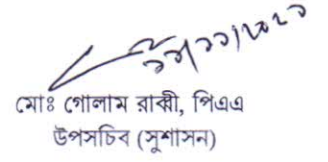 মোঃ গোলাম রাব্বী, পিএএ
উপসচিব (সুশাসন)